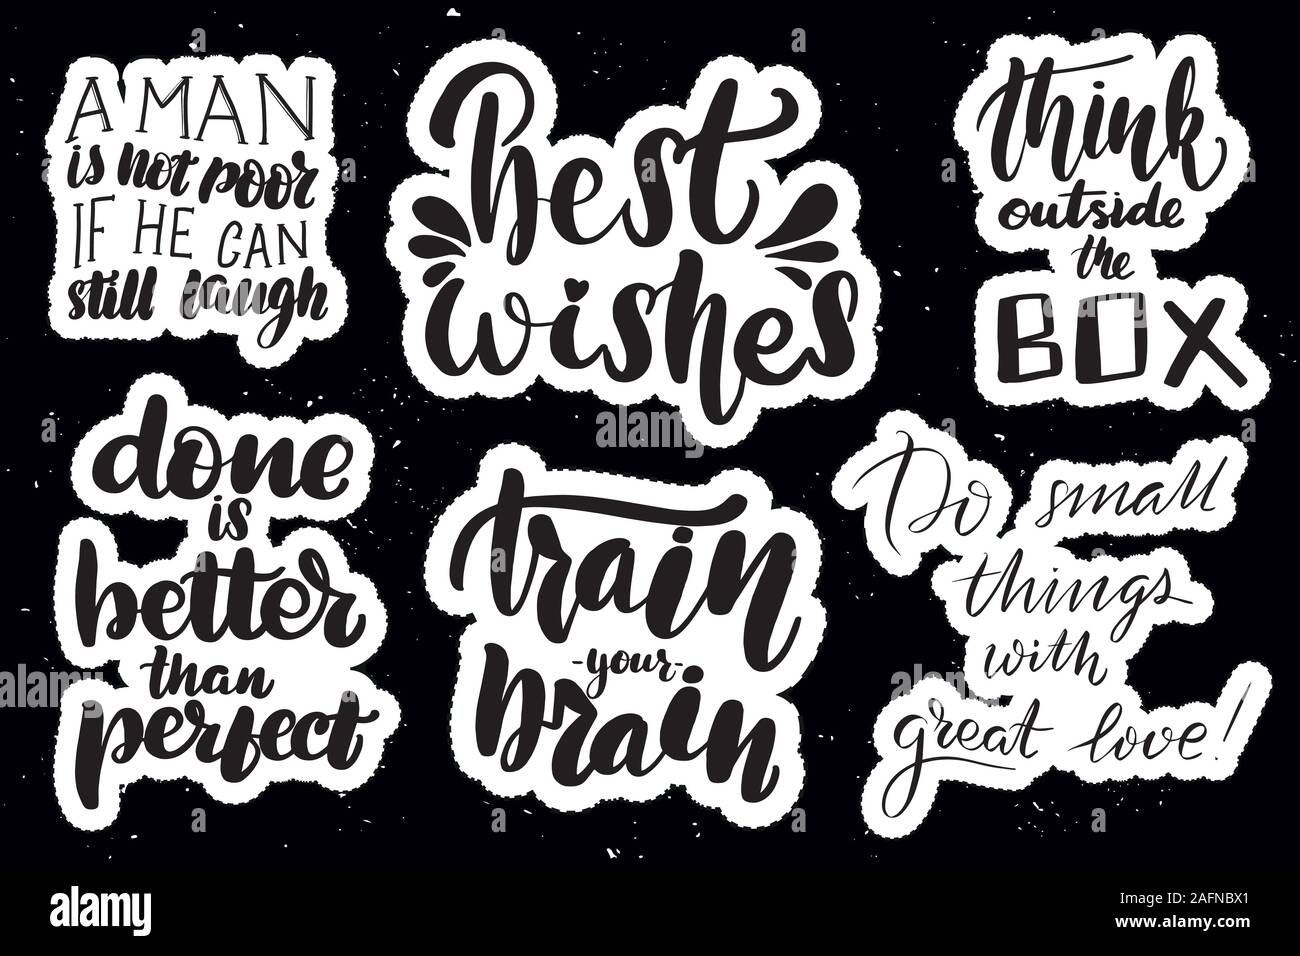 A MAN
is not poor
IF HE CAN
still laugh
Best
wishes
think
outside
the
BOX
done
is
better
than
perfect
train
-your-
brain
Do small
things
with
great love!
alamy
Image ID: 2AFNBX1
www.alamy.com